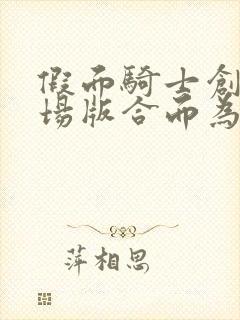 假面騎士創
場版合而為
萍相思